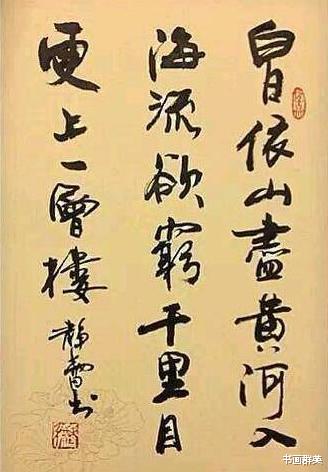 白日依山盡黄河入
海流欲窮千里目
更上一層樓
静雲书
书画群英